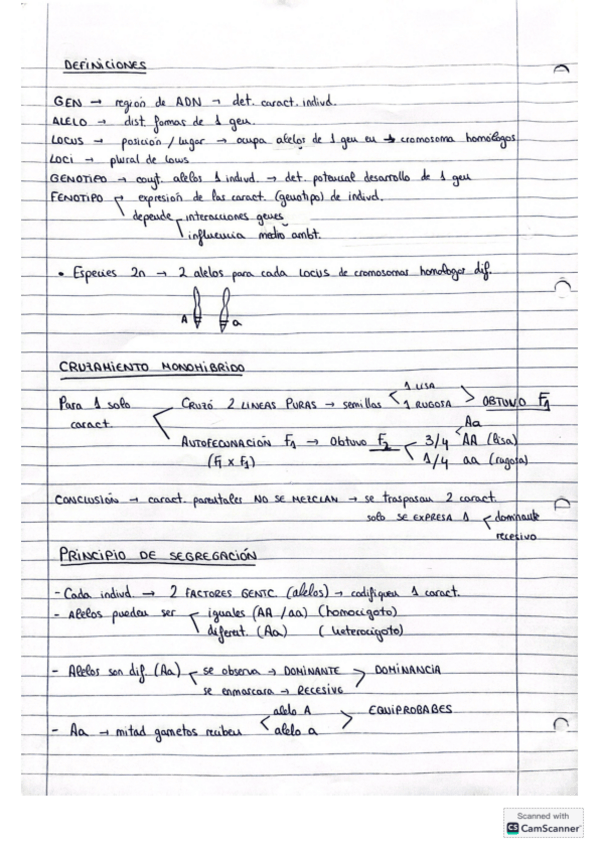 DEFINICIONES
GEN → región de ADN → det. caract. individ.
ALELO → dist. formas de 1 gen.
LOCUS → posición / lugar → ocupa alelos de 1 gen en → cromosoma homólogos
LOCI → plural de locus
GENOTIPO → conjt. alelos 1 individ. → det. potencial desarrollo de 1 gen
FENOTIPO → expresión de las caract. (genotipo) de individ.
depende interacciones genes
influencia medio ambt.
• Especies 2n → 2 alelos para cada locus de cromosomas homólogos dif.
A a
CRUZAMIENTO MONOHIBRIDO
Para 1 solo caract.
CRUZÓ 2 LINEAS PURAS → semillas 1 LISA 1 RUGOSA > OBTUVO F1
AUTOFECUNACIÓN F1 → Obtuvo F2 3/4 Aa AA (lisa)
(F1 x F1) 1/4 aa (rugosa)
CONCLUSIÓN → caract. parentales NO SE MEZCLAN → se traspasan 2 caract.
solo SE EXPRESA 1 dominante
recesivo
PRINCIPIO DE SEGREGACIÓN
- Cada individ. → 2 FACTORES GENTC. (alelos) → codifiquen 1 caract.
- Alelos pueden ser iguales (AA / aa) (homocigoto)
diferent. (Aa) (heterocigoto)
- Alelos son dif. (Aa) se observa → DOMINANTE > DOMINANCIA
se enmascara → RECESIVO
- Aa → mitad gametos reciben alelo A > EQUIPROBABES
alelo a
Scanned with
CS CamScanner